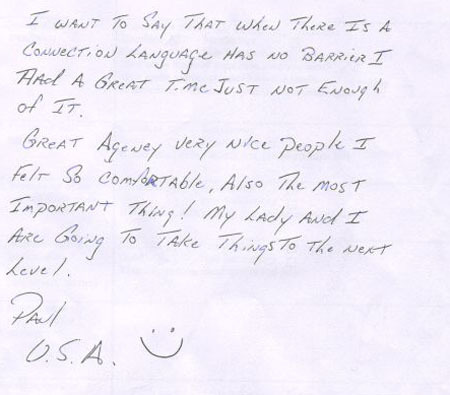 I WANT TO SAY THAT WHEN THERE IS A
CONNECTION LANGUAGE HAS NO BARRIER I
HAd A GREAT TIME JUST NOT ENOUGH
of IT.
GREAT Agency very Nice People I
Felt So Comfortable, Also The most
IMPORTANT Thing! My LADY And I
ARE GOING TO TAKE THINGS TO THE NEXT
Level.
PAUl
U.S.A.